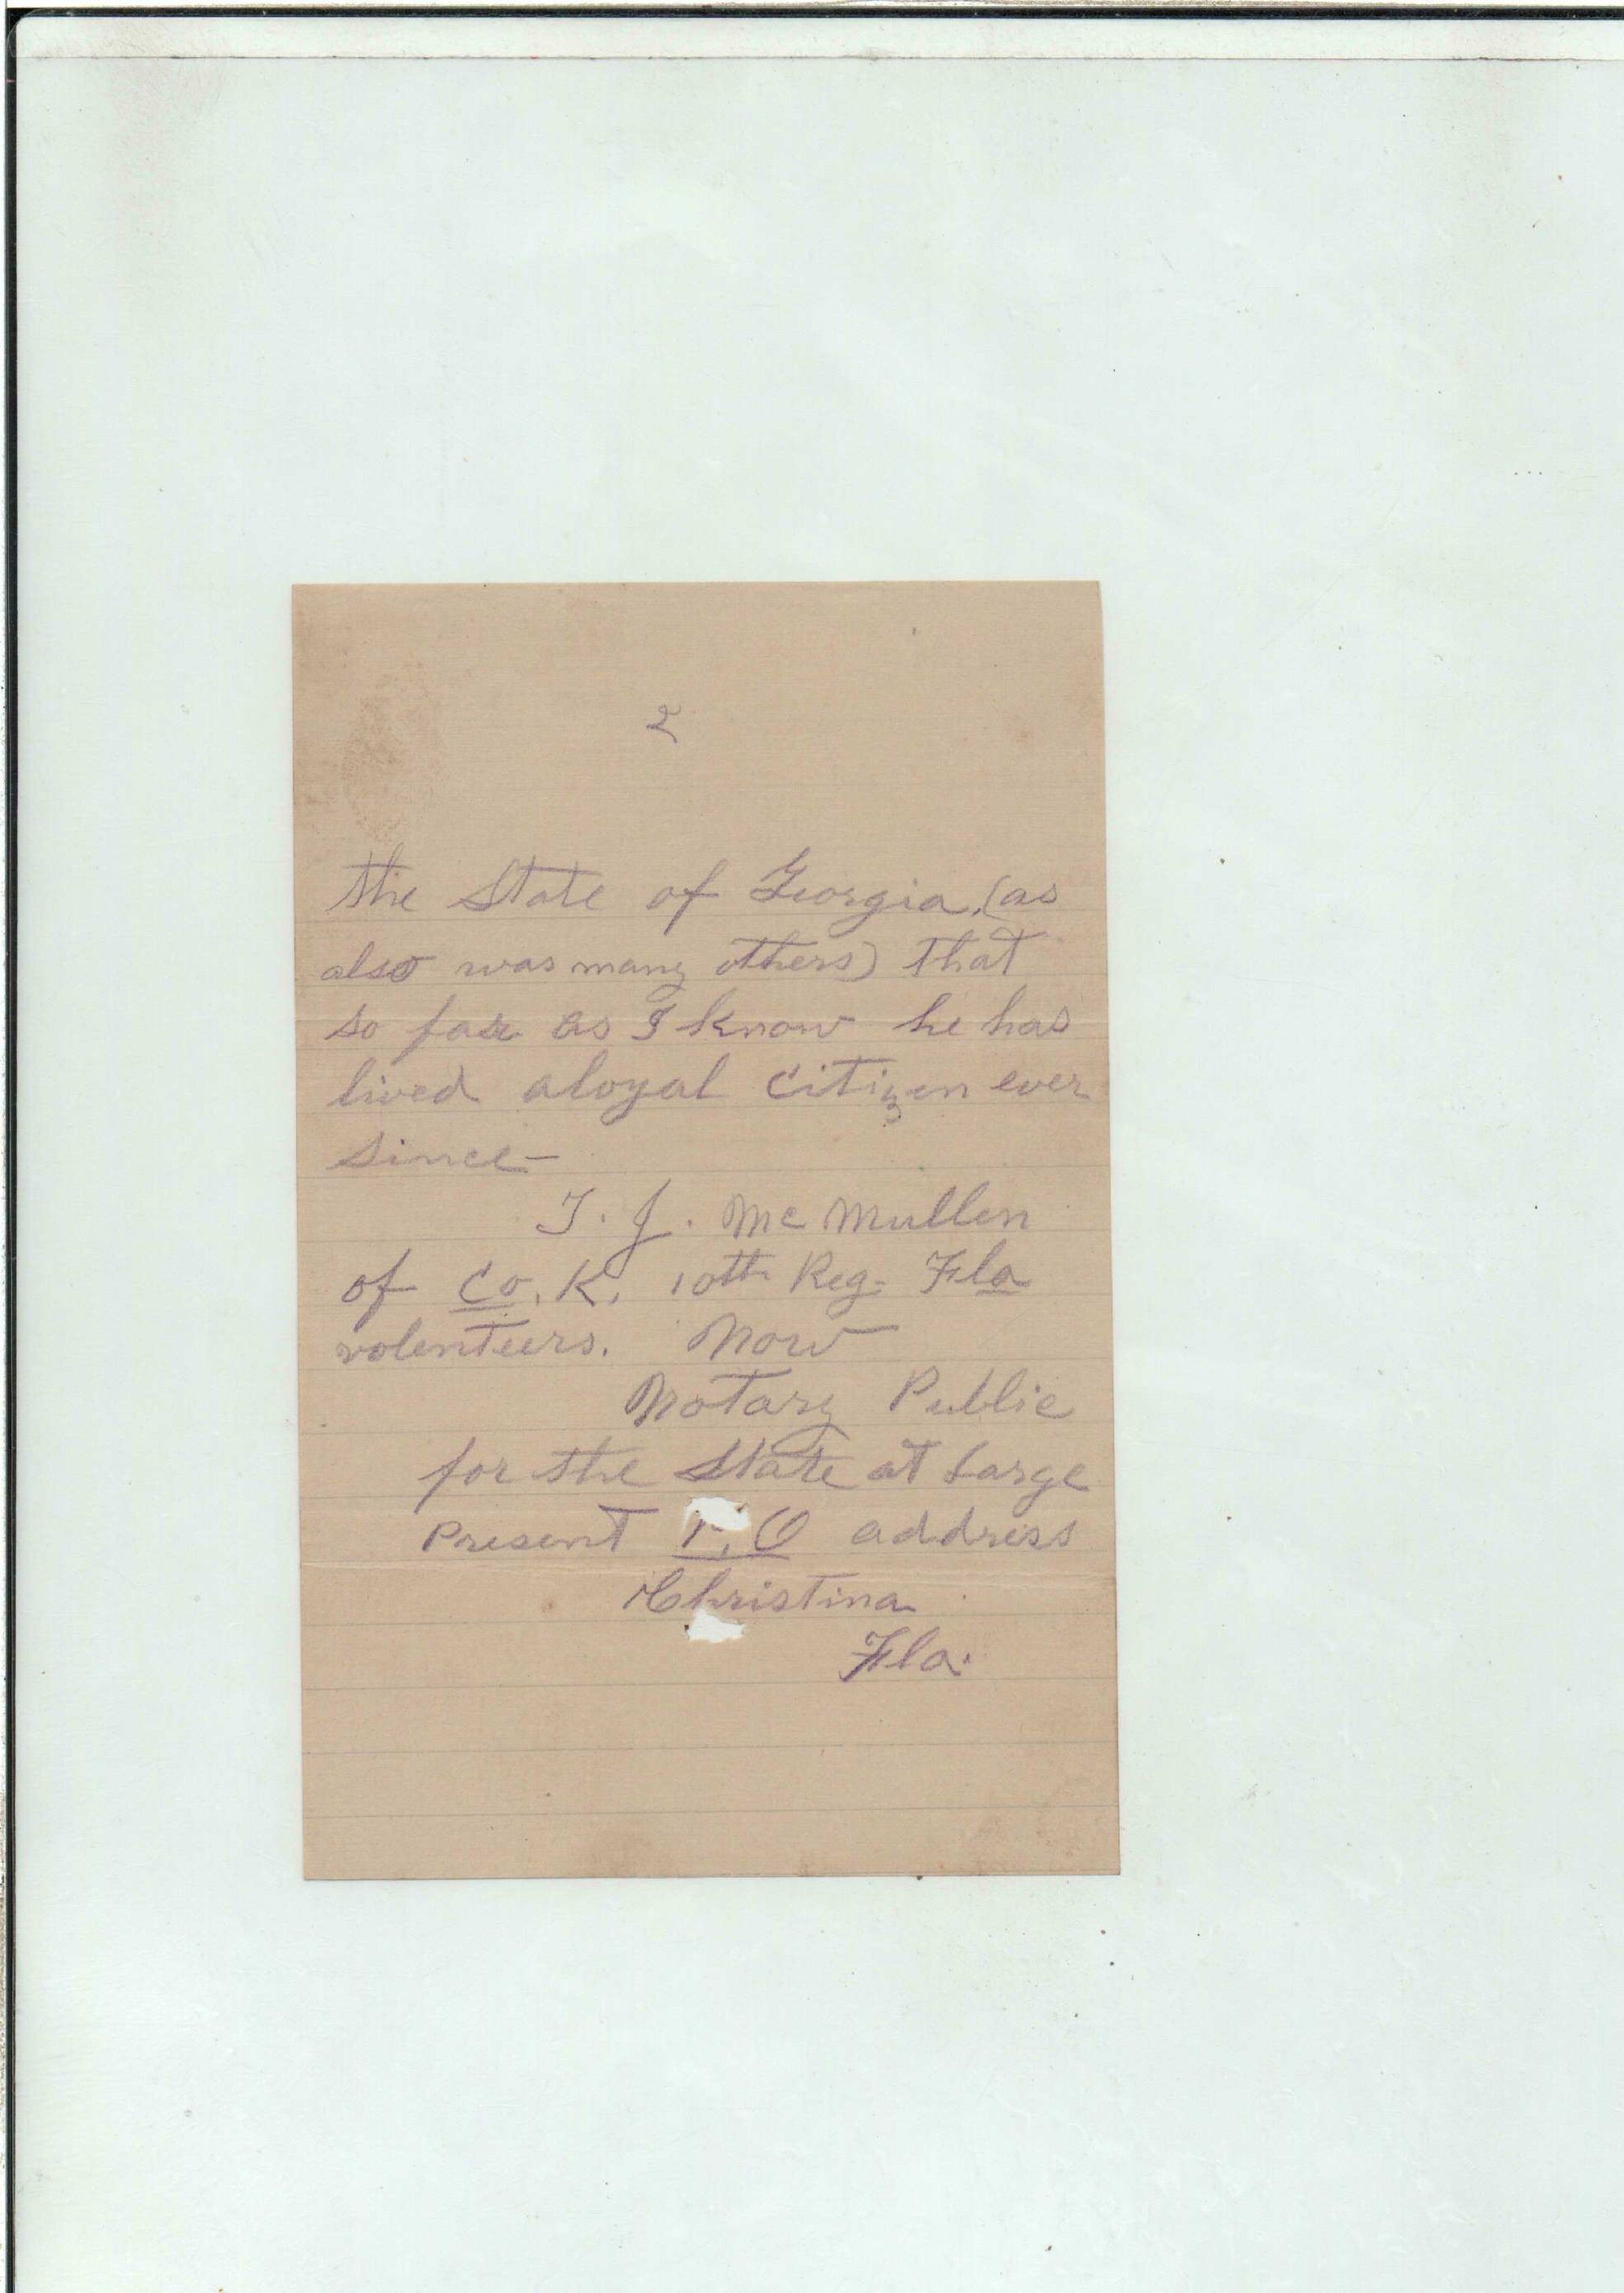 2
the State of Georgia, (as
also was many others) that
so far as I know he has
lived a loyal citizen ever
since—
T. J. McMullen
of Co. K, 10th Reg. Fla
volenteers. Now
Notary Public
for the State at Large
Present P.O address
Christina
Fla.